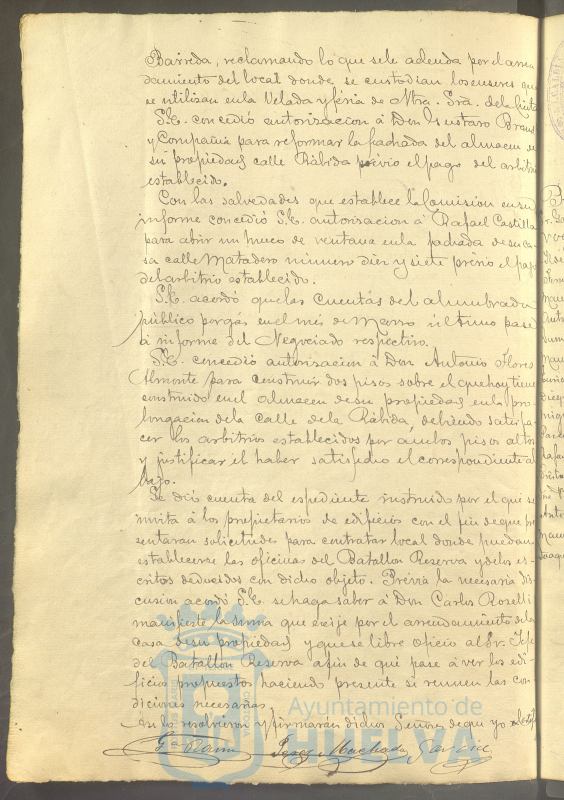 Barreda, reclamando lo que se le adeuda por el arren
damiento del local donde se custodian los enseres que
se utilizan en la Velada y feria de Ntra. Sra. de la Cinta
S.E. concedió autorizacion á Don Gustavo Braun
y Compañia para reformar la fachada del almacen de
su propiedad calle Rábida previo el pago del arbitrio
establecido.
Con las salvedades que establece la Comision en su
informe concedió S.E. autorizacion á Rafael Castilla
para abrir un hueco de ventana en la fachada de su ca
sa calle Matadero número diez y siete prévio el pago
del arbitrio establecido.
S.E. acordó que las cuentas del alumbrado
público por gas en el mes de Marzo último pase
á informe del Negociado respectivo.
S.E. concedió autorizacion á Don Antonio Flores
Almonte para construir dos pisos sobre el que hoy tiene
construido en el almacen de su propiedad en la pro
longacion de la calle de la Rábida, debiendo satisfa
cer los arbitrios establecidos por ambos pisos altos
y justificar el haber satisfecho el correspondiente al
bajo.
Se dió cuenta del espediente instruido por el que se
invita á los propietarios de edificios con el fin de que pre
sentaran solicitudes para contratar local donde puedan
establecerse las oficinas del Batallon Reserva y de los es-
critos deducidos con dicho objeto. Prévia la necesaria dis-
cusion acordó S.E. se haga saber á Don Carlos Roselli
manifieste la suma que exije por el arrendamiento de la
casa de su propiedad y que se libre oficio al Sr. Jefe
del Batallon Reserva á fin de que pase á ver los edi-
ficios propuestos haciendo presente si reunen las con-
diciones necesarias.
Asi lo resolvieron y firmarán dichos Señores de que yo
Perez Machado Garcia
Ayuntamiento de
HUELVA